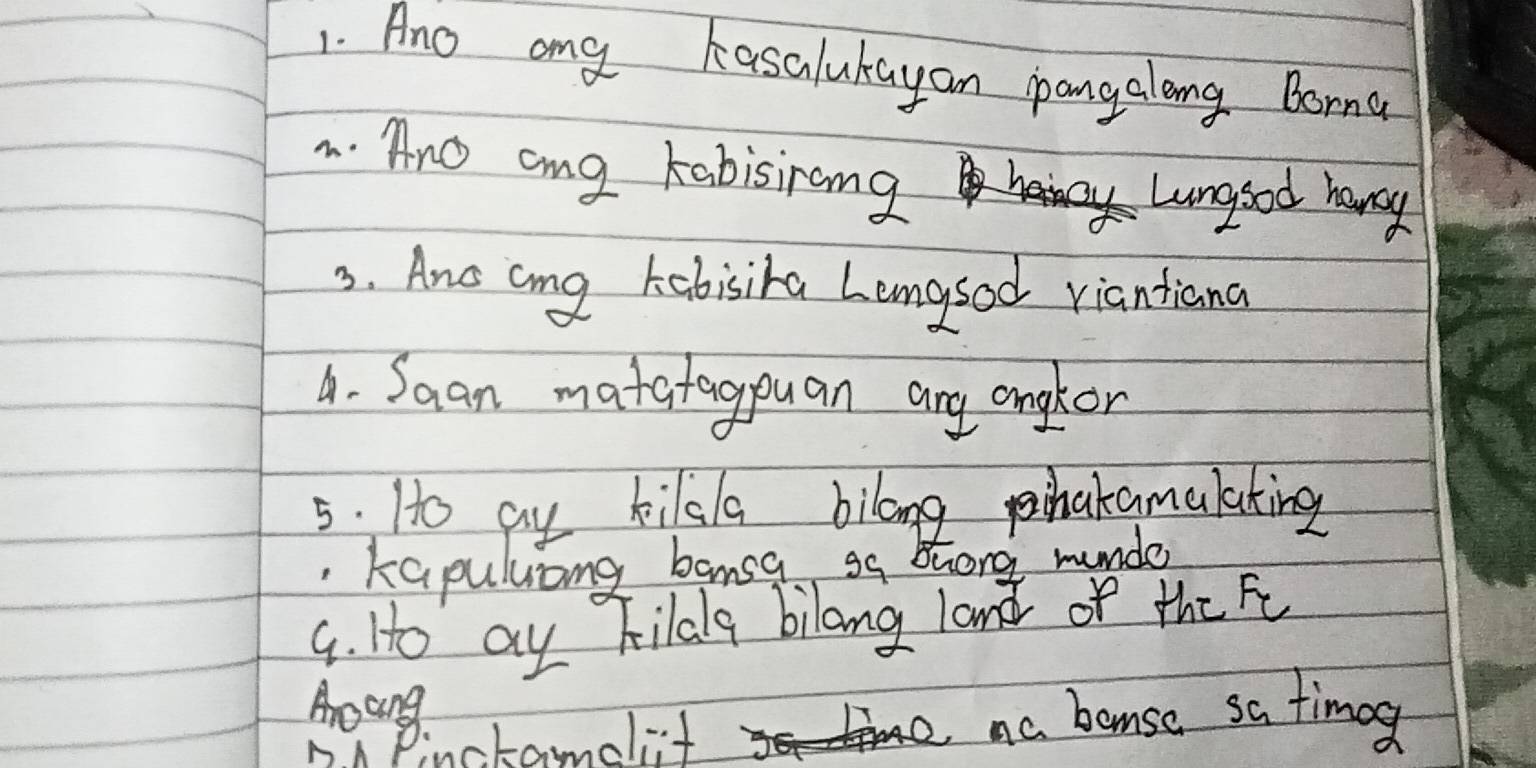 1. Ano ang kasalukayan pangalang Borna
2. Ano ang kabisirang Lungsod hanoy
3. Ano ang kabisira Langsod viantiana
4. Saan matatagpuan ang angkor
5. Ito ay kilala bilang pinakamalaking
. kapuluang bansa sa buong mundo
6. Ito ay kilala bilang land of the Fr
Ano ang
7. Pinakamaliit na bansa sa timog